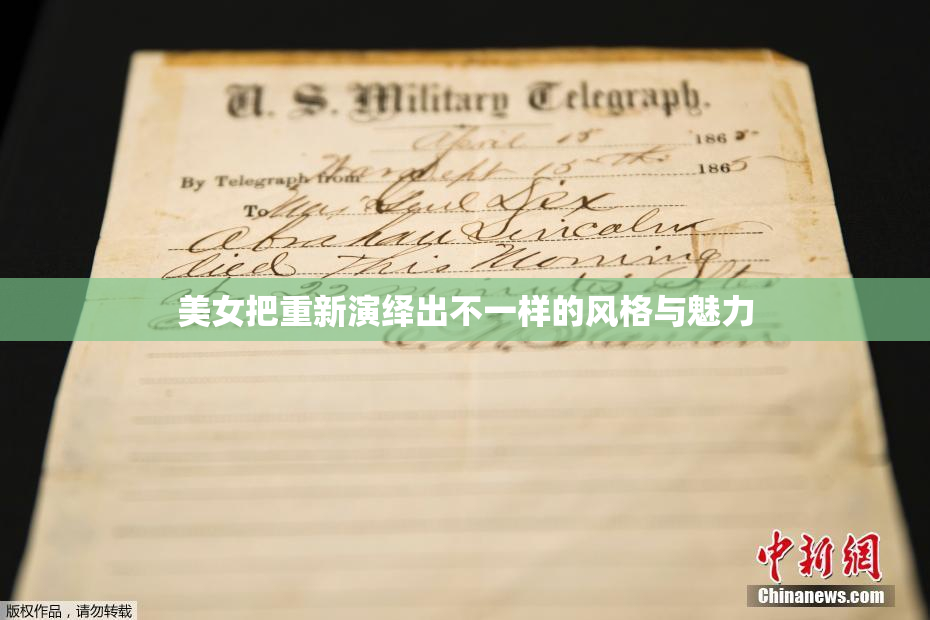 U. S. Military Telegraph.
April 15 1865
By Telegraph from War Dept 15th 1865
To Maj Genl Dix
Abraham Lincoln
died This Morning
at 22 minutes after
美女把重新演绎出不一样的风格与魅力
E. M. Stanton
中新网
Chinanews.com
版权作品，请勿转载